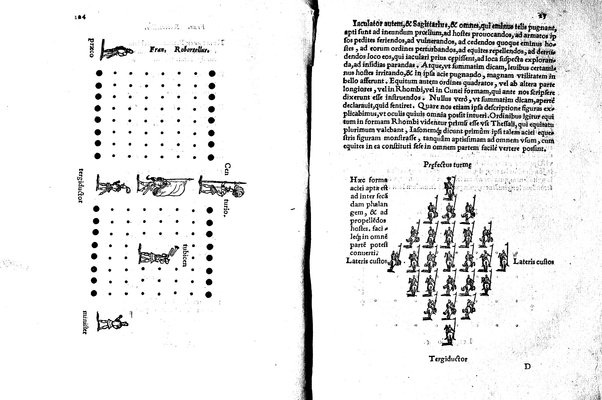 124
Fran. Robortellus.
præco
tergiductor
Cen
turio.
tubicen
minister
25
Iaculator autem, & Sagittarius, & omnes, qui eminus telis pugnant,
apti sunt ad ineundum prœlium, ad hostes prouocandos, ad armatos ip
sos pedites feriendos, ad vulnerandos, ad cedendos quoque eminus ho-
stes, ad eorum ordines perturbandos, ad equites repellendos, ad derrù-
dendos loco eos, qui iaculari prius cœpissent, ad loca suspecta exploran-
da, ad insidias parandas. Atque, vt summatim dicam, leuibus certamí-
nus hostes irritando, & in ipsa acie pugnando, magnam vtilitatem in
bello afferunt. Equitum autem ordines quadratos, vel ab altera parte
longiores, vel in Rhombi, vel in Cunei formam, qui ante nos scripsere
dixerunt esse instruendos. Nullus verò, vt summatim dicam, apertè
declarauit, quid sentiret. Quare nos etiam ipsa descriptione figuras ex-
plicabimus, vt oculis quiuis omnia possit intueri. Ordinibus igitur equi
tum in formam Rhombi videntur primù esse vsi Thessali, qui equitatu
plurimum valebant, Iasonemq́; dicunt primùm ipsi talem aciei eque-
stris figuram monstrasse, tanquàm aptissimam ad omnem vsum, cum
equites in ea constituti sese in omnem partem facilè vertere possint.
Præfectus turmę
Hæc forma
aciei apta est
ad inter secã
dam phalan
gem, & ad
propellẽdos
hostes. faci-
leq́; in omnẽ
partẽ potest
conuerti;
Lateris custos
Lateris custos
Tergiductor
D